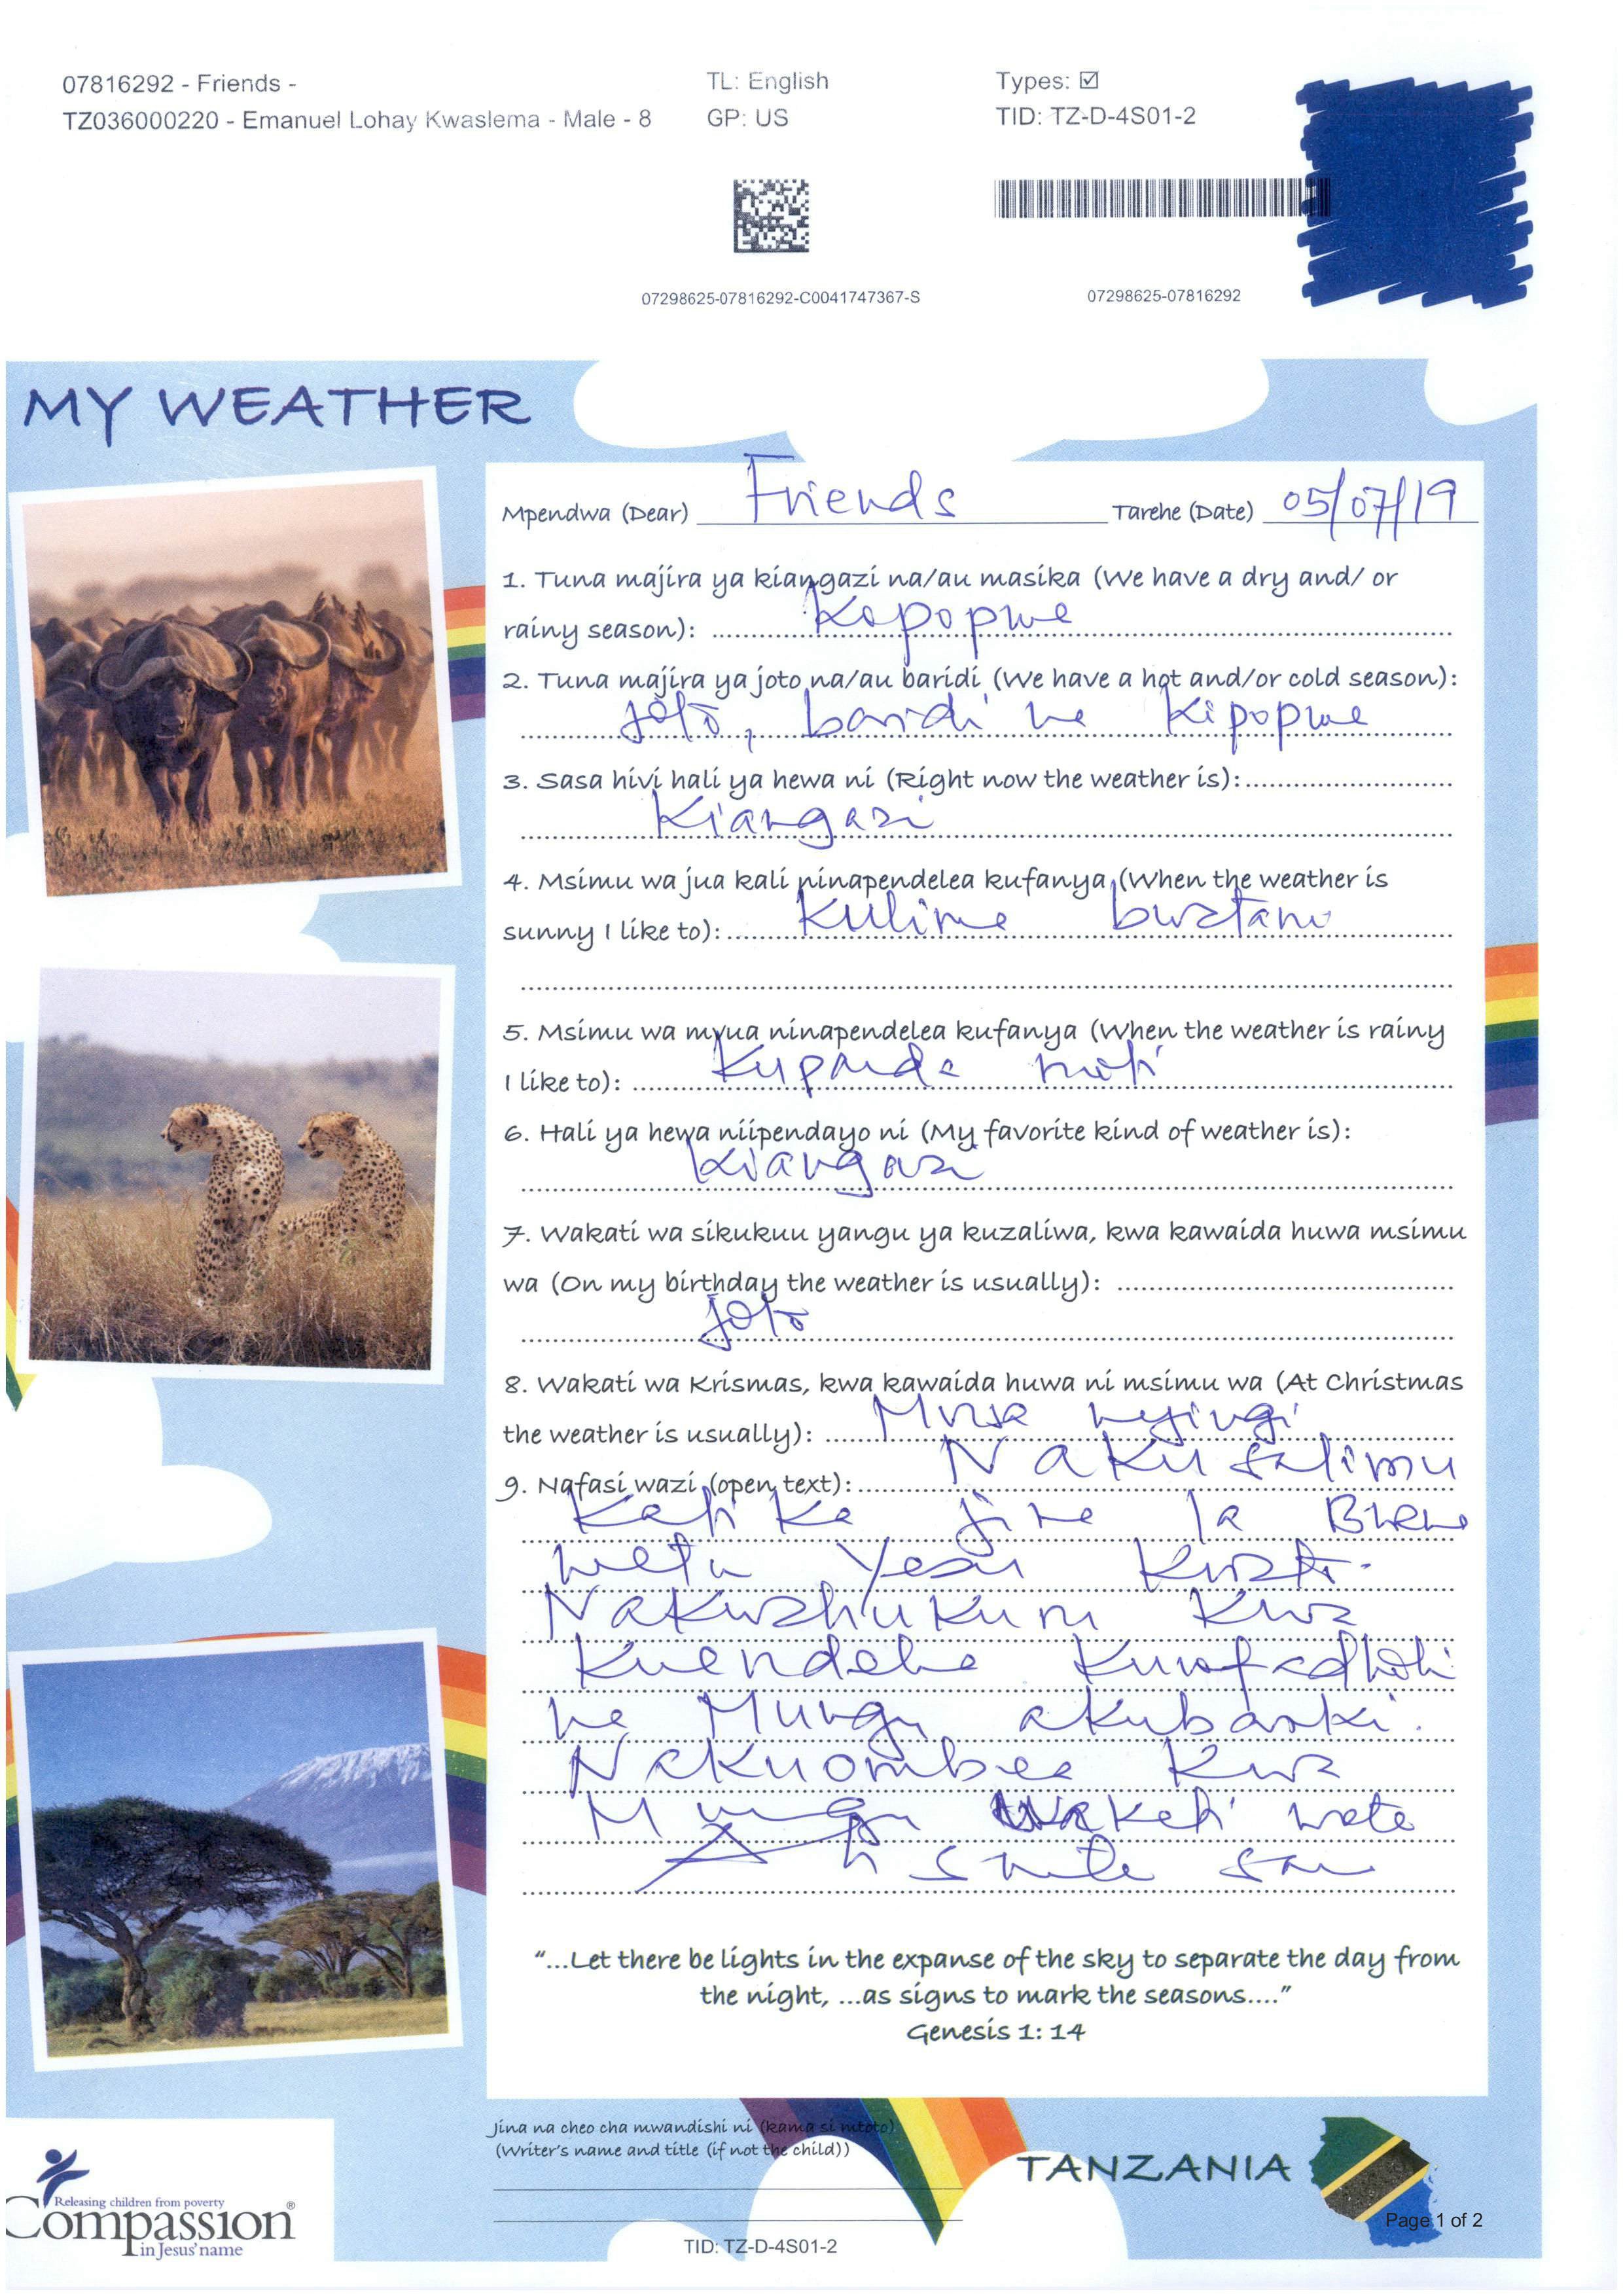 07816292 - Friends -
TZ036000220 - Emanuel Lohay Kwaslema - Male - 8
TL: English
GP: US
Types: ☑
TID: TZ-D-4S01-2
07298625-07816292-C0041747367-S
07298625-07816292
MY WEATHER
Mpendwa (Dear) Friends Tarehe (Date) 05/07/19
1. Tuna majira ya kiangazi na/au masika (We have a dry and/ or
rainy season): Kopopwe
2. Tuna majira ya joto na/au baridi (We have a hot and/or cold season):
joto, baridi na Kipopwe
3. Sasa hivi hali ya hewa ni (Right now the weather is):
Kiangazi
4. Msimu wa jua kali ninapendelea kufanya (When the weather is
sunny I like to): Kulima bustani
5. Msimu wa mvua ninapendelea kufanya (When the weather is rainy
I like to): Kupanda miti
6. Hali ya hewa niipendayo ni (My favorite kind of weather is):
Kiangazi
7. Wakati wa sikukuu yangu ya kuzaliwa, kwa kawaida huwa msimu
wa (On my birthday the weather is usually):
joto
8. Wakati wa Krismas, kwa kawaida huwa ni msimu wa (At Christmas
the weather is usually): Mvua nyingi
9. Nafasi wazi (open text): Nakusalimu
Katika jina la Bwana
wetu Yesu Kristo.
Nakushukuru Kwa
Kuendelea Kunifadhili
na Mungu akubariki.
Nakuombea Kwa
Mungu wakati wote
Asante sana
"...Let there be lights in the expanse of the sky to separate the day from
the night, ...as signs to mark the seasons...."
Genesis 1: 14
Jina na cheo cha mwandishi ni (kama si mtoto)
(Writer's name and title (if not the child))
TANZANIA
Releasing children from poverty
Compassion®
in Jesus' name
TID: TZ-D-4S01-2
Page 1 of 2